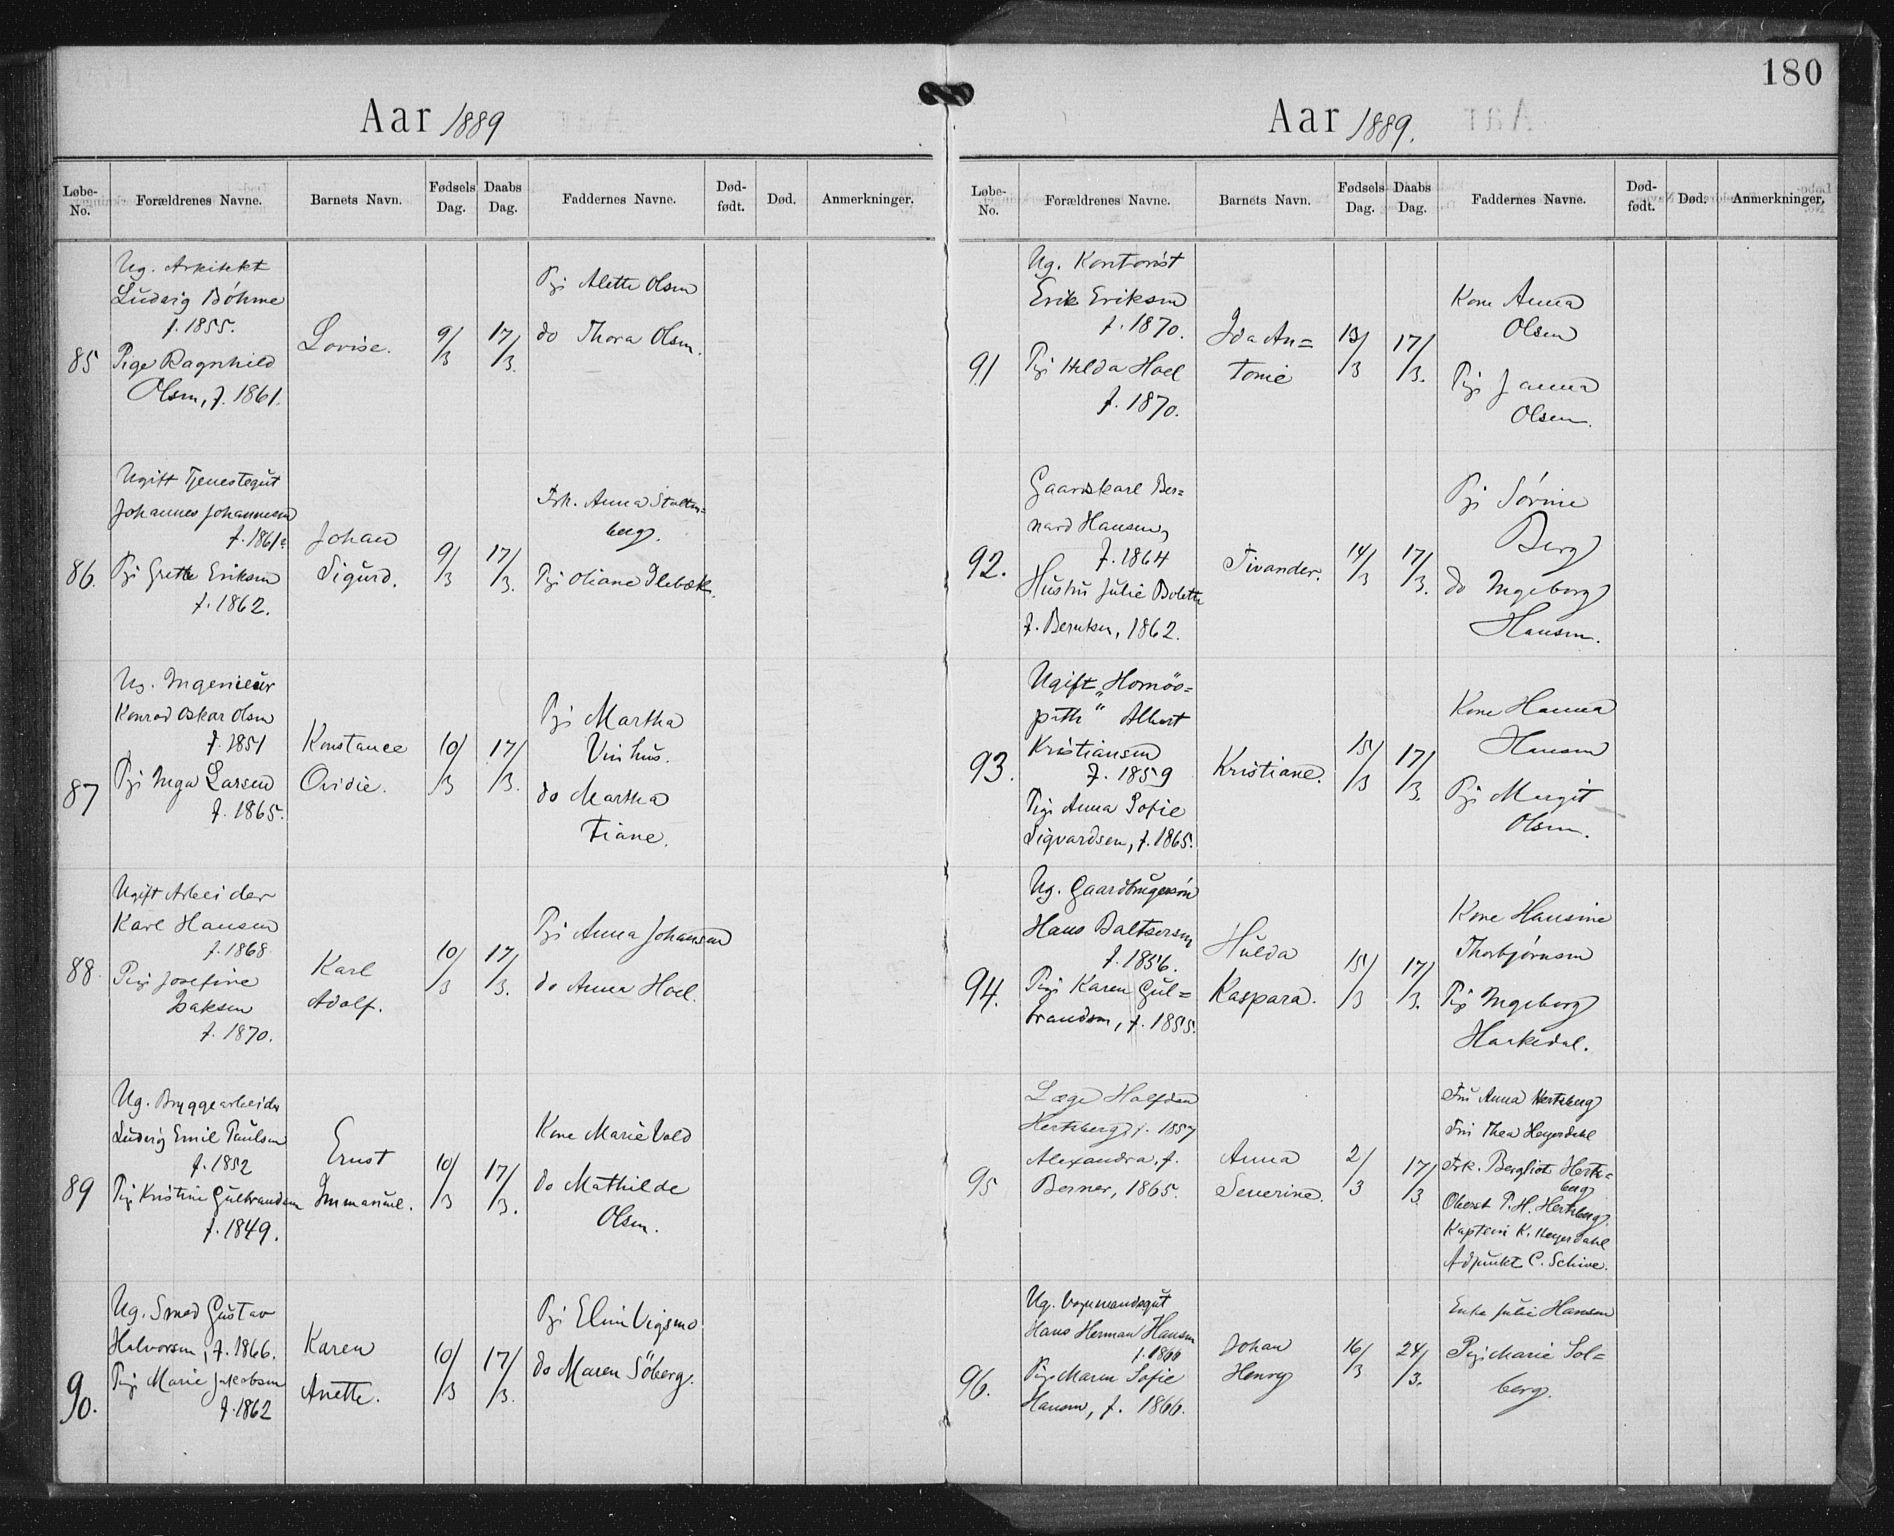 180
Aar 1889
Løbe-No. Forældrenes Navne. Barnets Navn. Fødsels Dag. Daabs Dag. Faddernes Navne. Død-født. Død. Anmerkninger.
85
Ug. Arkitekt
Ludvig Böhme
f. 1855.
Pige Ragnhild
Olsen, f. 1861.
Lovise.
9/3
17/3.
Pige Alette Olsen
do Thora Olsen.
86.
Ugift Tjenestegut
Johannes Johannesen
f. 1861.
Pige Grethe Eriksen
f. 1862.
Johan
Sigurd.
9/3
17/3.
Frk. Anna Stolten=
berg.
Pige Oliane
87
Ug. Ingenieur
Konrad Oskar Olsen
f. 1851
Pige Inga Larsen
f. 1865.
Konstance
Ovidie.
10/3
17/3.
Pige Martha
Vinhus.
do Martha
Tiane.
88.
Ugift Arbeider
Karl Hansen
f. 1868.
Pige Josefine
Isaksen
f. 1870.
Karl
Adolf.
10/3
17/3.
Pige Anna Johansen
do Anna Hoel.
89
Ug. Bryggearbeider
Ludvig Emil Paulsen
f. 1852
Pige Kristine Gulbrandsen
f. 1849.
Ernst
Immanuel.
10/3
17/3.
Kone Marie Vold
do Mathilde
Olsen.
90.
Ug. Smed Gustav
Halvorsen, f. 1866.
Pige Marie Jakobsen
f. 1862
Karen
Anette.
10/3
17/3.
Pige Elini Vigsmo
do Maren Söberg.
Aar 1889.
Løbe-No. Forældrenes Navne. Barnets Navn. Fødsels Dag. Daabs Dag. Faddernes Navne. Død-født. Død. Anmerkninger.
91
Ug. Kontorist
Erik Eriksen
f. 1870.
Pige Hilda Hoel
f. 1870.
Ida An=
tonie
13/3
17/3.
Kone Anna
Olsen
Pige Janna
Olsen.
92.
Gaardskarl Ber=
nard Hansen,
f. 1864
Hustru Julie Bolette
f. Berntsen, 1862.
Tivander.
14/3
17/3.
Pige Sørine
Berg
do Ingeborg
Hansen.
93.
Ugift "Homöo=
path" Albert
Kristiansen
f. 1859
Pige Anna Sofie
Sigvardsen, f. 1865.
Kristiane.
15/3
17/3.
Kone Hanna
Hansen
Pige Margit
Olsen.
94.
Ug. Gaardbrugersøn
Hans Baltsersen
f. 1856.
Pige Karen Gul=
brandsen, f. 1855.
Hulda
Kaspara.
15/3
17/3.
Kone Hansine
Thorbjørnsen
Pige Ingeborg
Harkedal.
95
Læge Halfdan
Hertzberg, f. 1857
Alexandra, f.
Berner, 1865.
Anna
Severine.
2/3
17/3
Fru Anna Hertzberg
Fru Thea Heyerdahl
Frk. Bergliot Hertz=
berg
Oberst P. H. Hertzberg.
Kaptein K. Heyerdahl
Adjunkt C. Schive.
96.
Ug. Vognmandsgut
Hans Herman Hansen
f. 1866
Pige Maren Sofie
Hansen, f. 1866.
Johan
Henry
16/3
24/3.
Enke Julie Hansen
Pige Marie Sol=
berg.